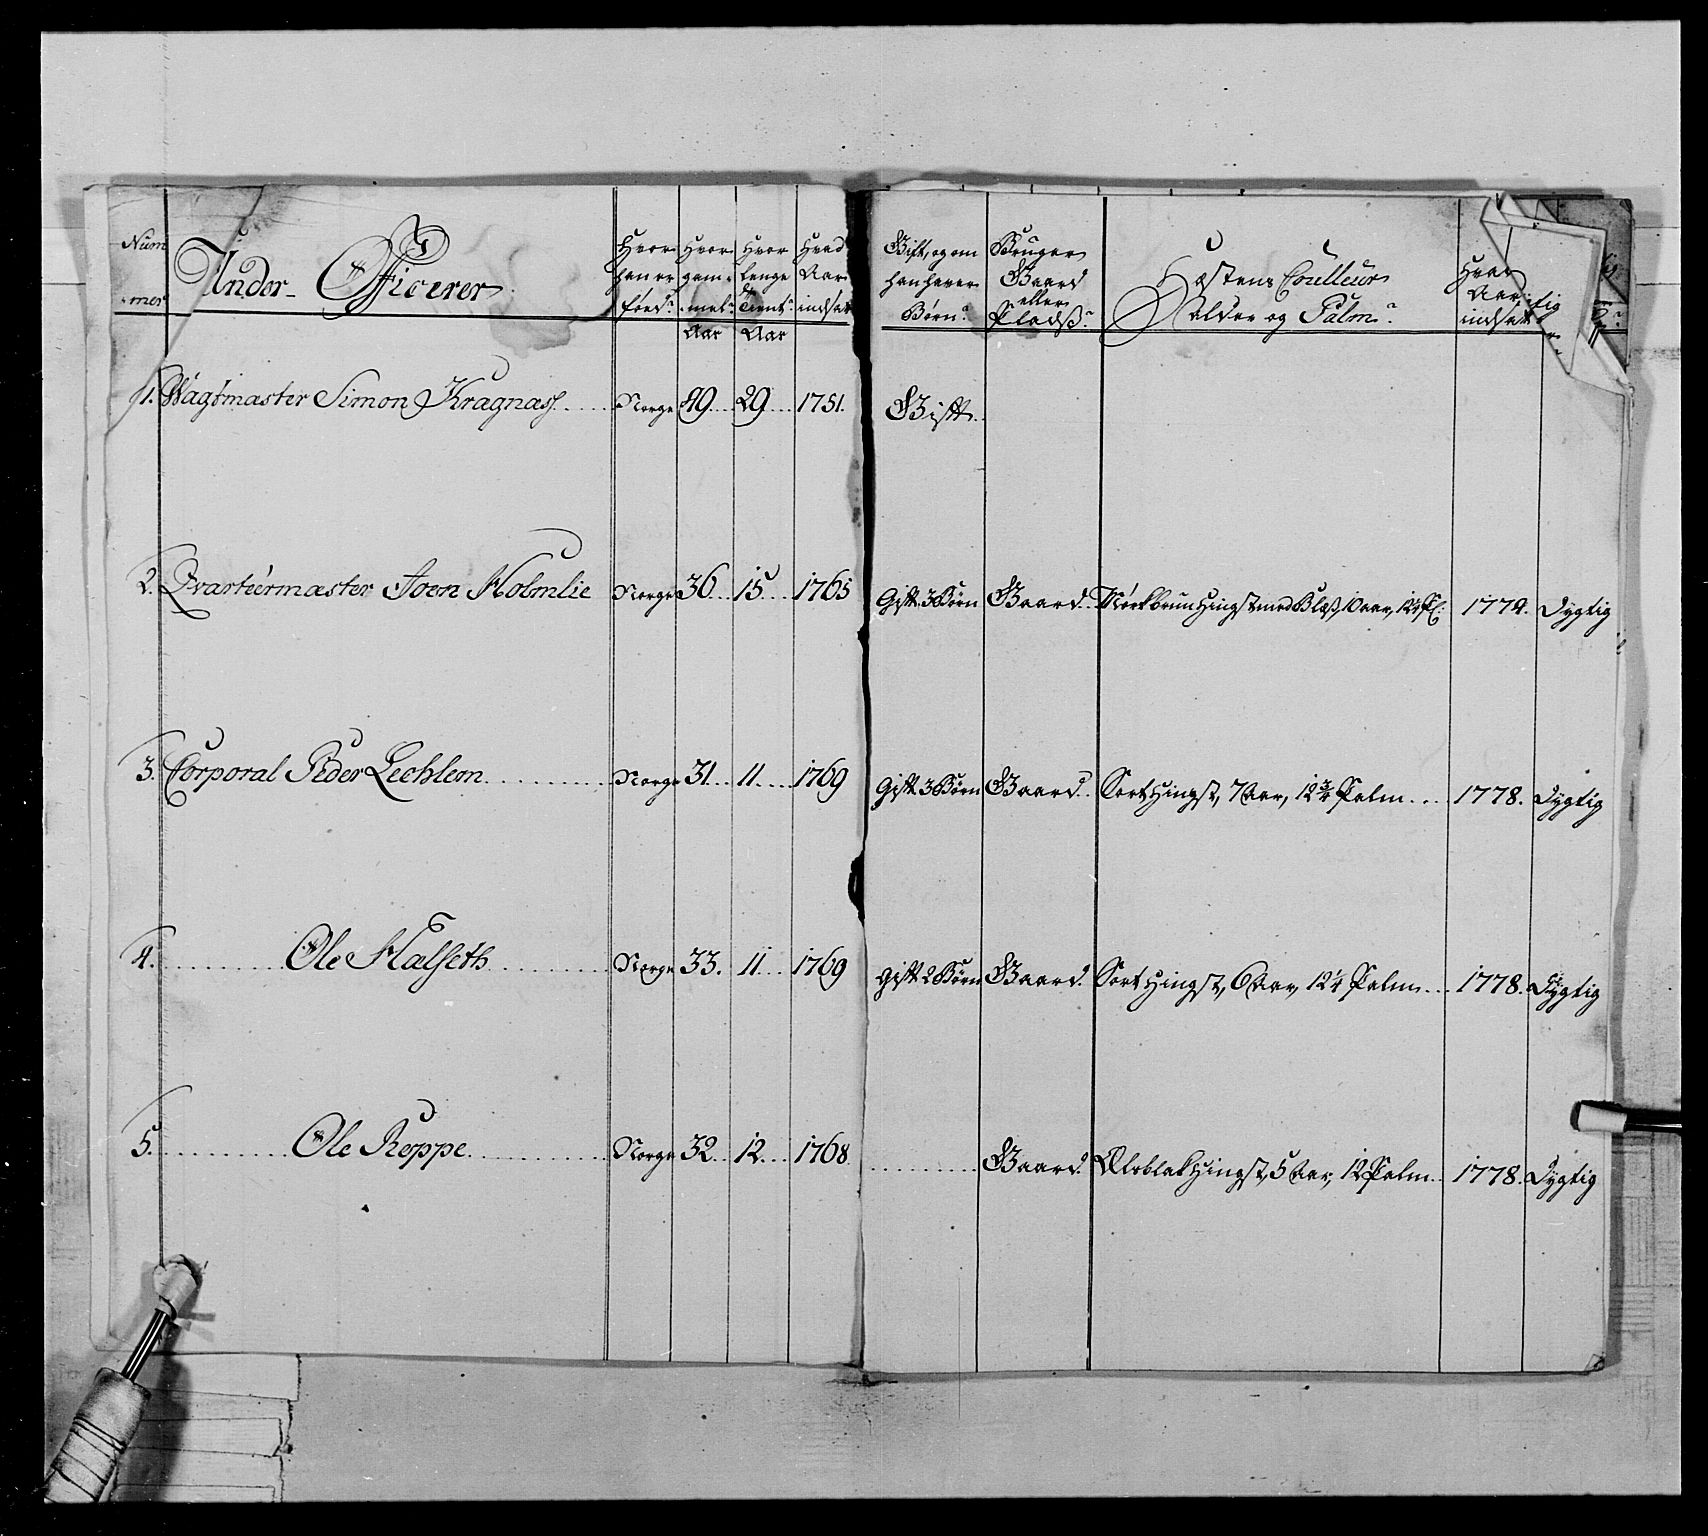 Num-mer
Under-Officerer
Hvor han er föed?
Hvor gam-mel? Aar
Hvor lenge tient? Aar
Hvad Aar indsat
Gift, og om han haver Börn?
Bruger Gaard eller Pladß?
Hæstens Coulleur Alder og Palm?
Hvad Aar indsat
1. Wagtmæster Simon Kragnæss Norge 49 29 1751. Gift
2. Qvarteermæster Joen Holmlie Norge 36 15 1765 Gift 3 Börn Gaard Mörkbrun Hingst med Blæß, 10 aar, 12 1774. Dygtig
3. Corporal Peder Lechlem Norge 31 11 1769 Gift 3 Börn Gaard Sort Hingst, 7 Aar, 12 3/4 Palm 1778. Dygtig
4. Ole Halseth Norge 33. 11 1769 Gift 2 Börn Gaard Sort Hingst, 6 Aar, 12 1/4 Palm 1778. Dygtig
5. Ole Roppe Norge 32 12 1768 Gaard Hingst, 5 Aar, 12 Palm 1778. Dygtig